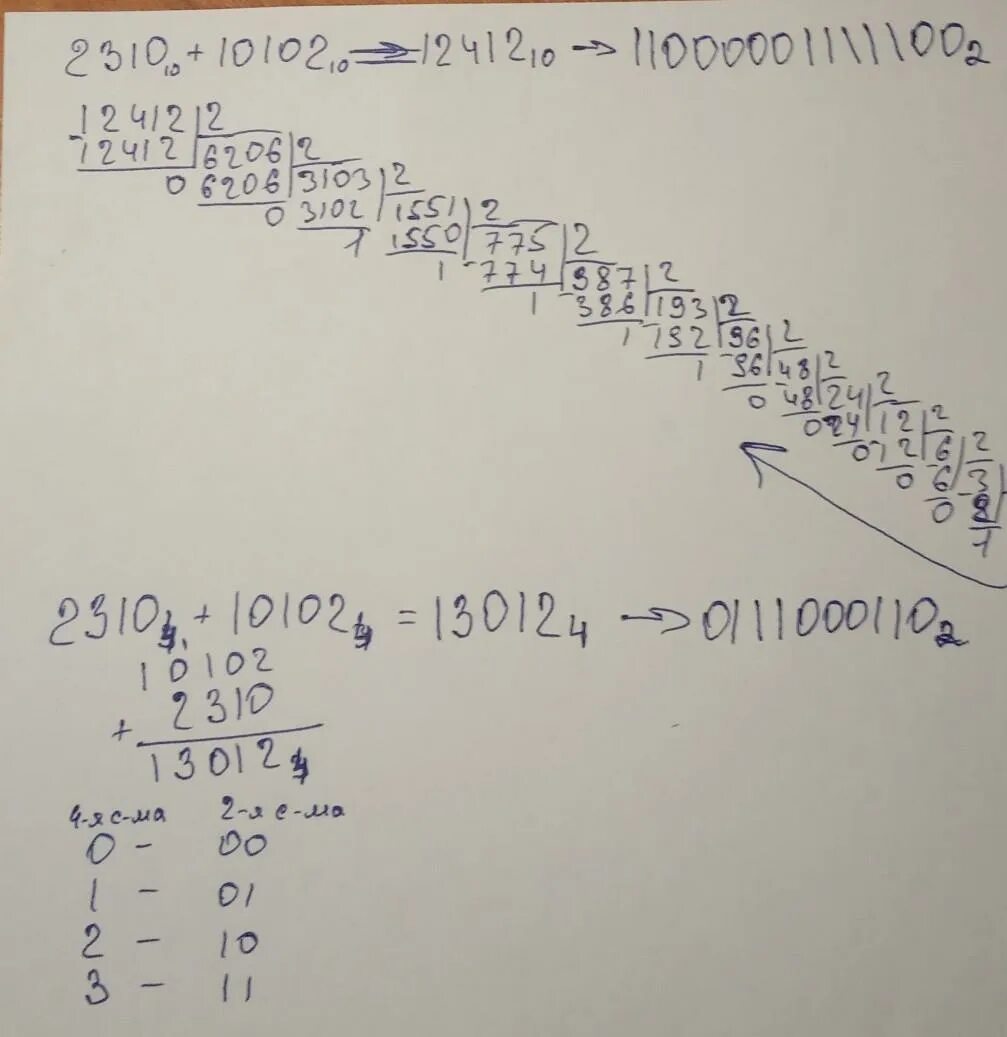 2310₁₀ + 10102₁₀ = 12412₁₀ → 11000001111100₂
12412 2
-12412 6206 2
0 6206 3103 2
0 3102 1551 2
1 1550 775 2
1 -774 387 2
1 -386 193 2
1 -192 96 2
1 -96 48 2
0 -48 24 2
0 24 12 2
0 12 6 2
0 -6 3
0 2
1
2310₄ + 10102₄ = 13012₄ → 0111000110₂
10102
+ 2310
13012₄
4-я с-ма 2-я с-ма
0 - 00
1 - 01
2 - 10
3 - 11